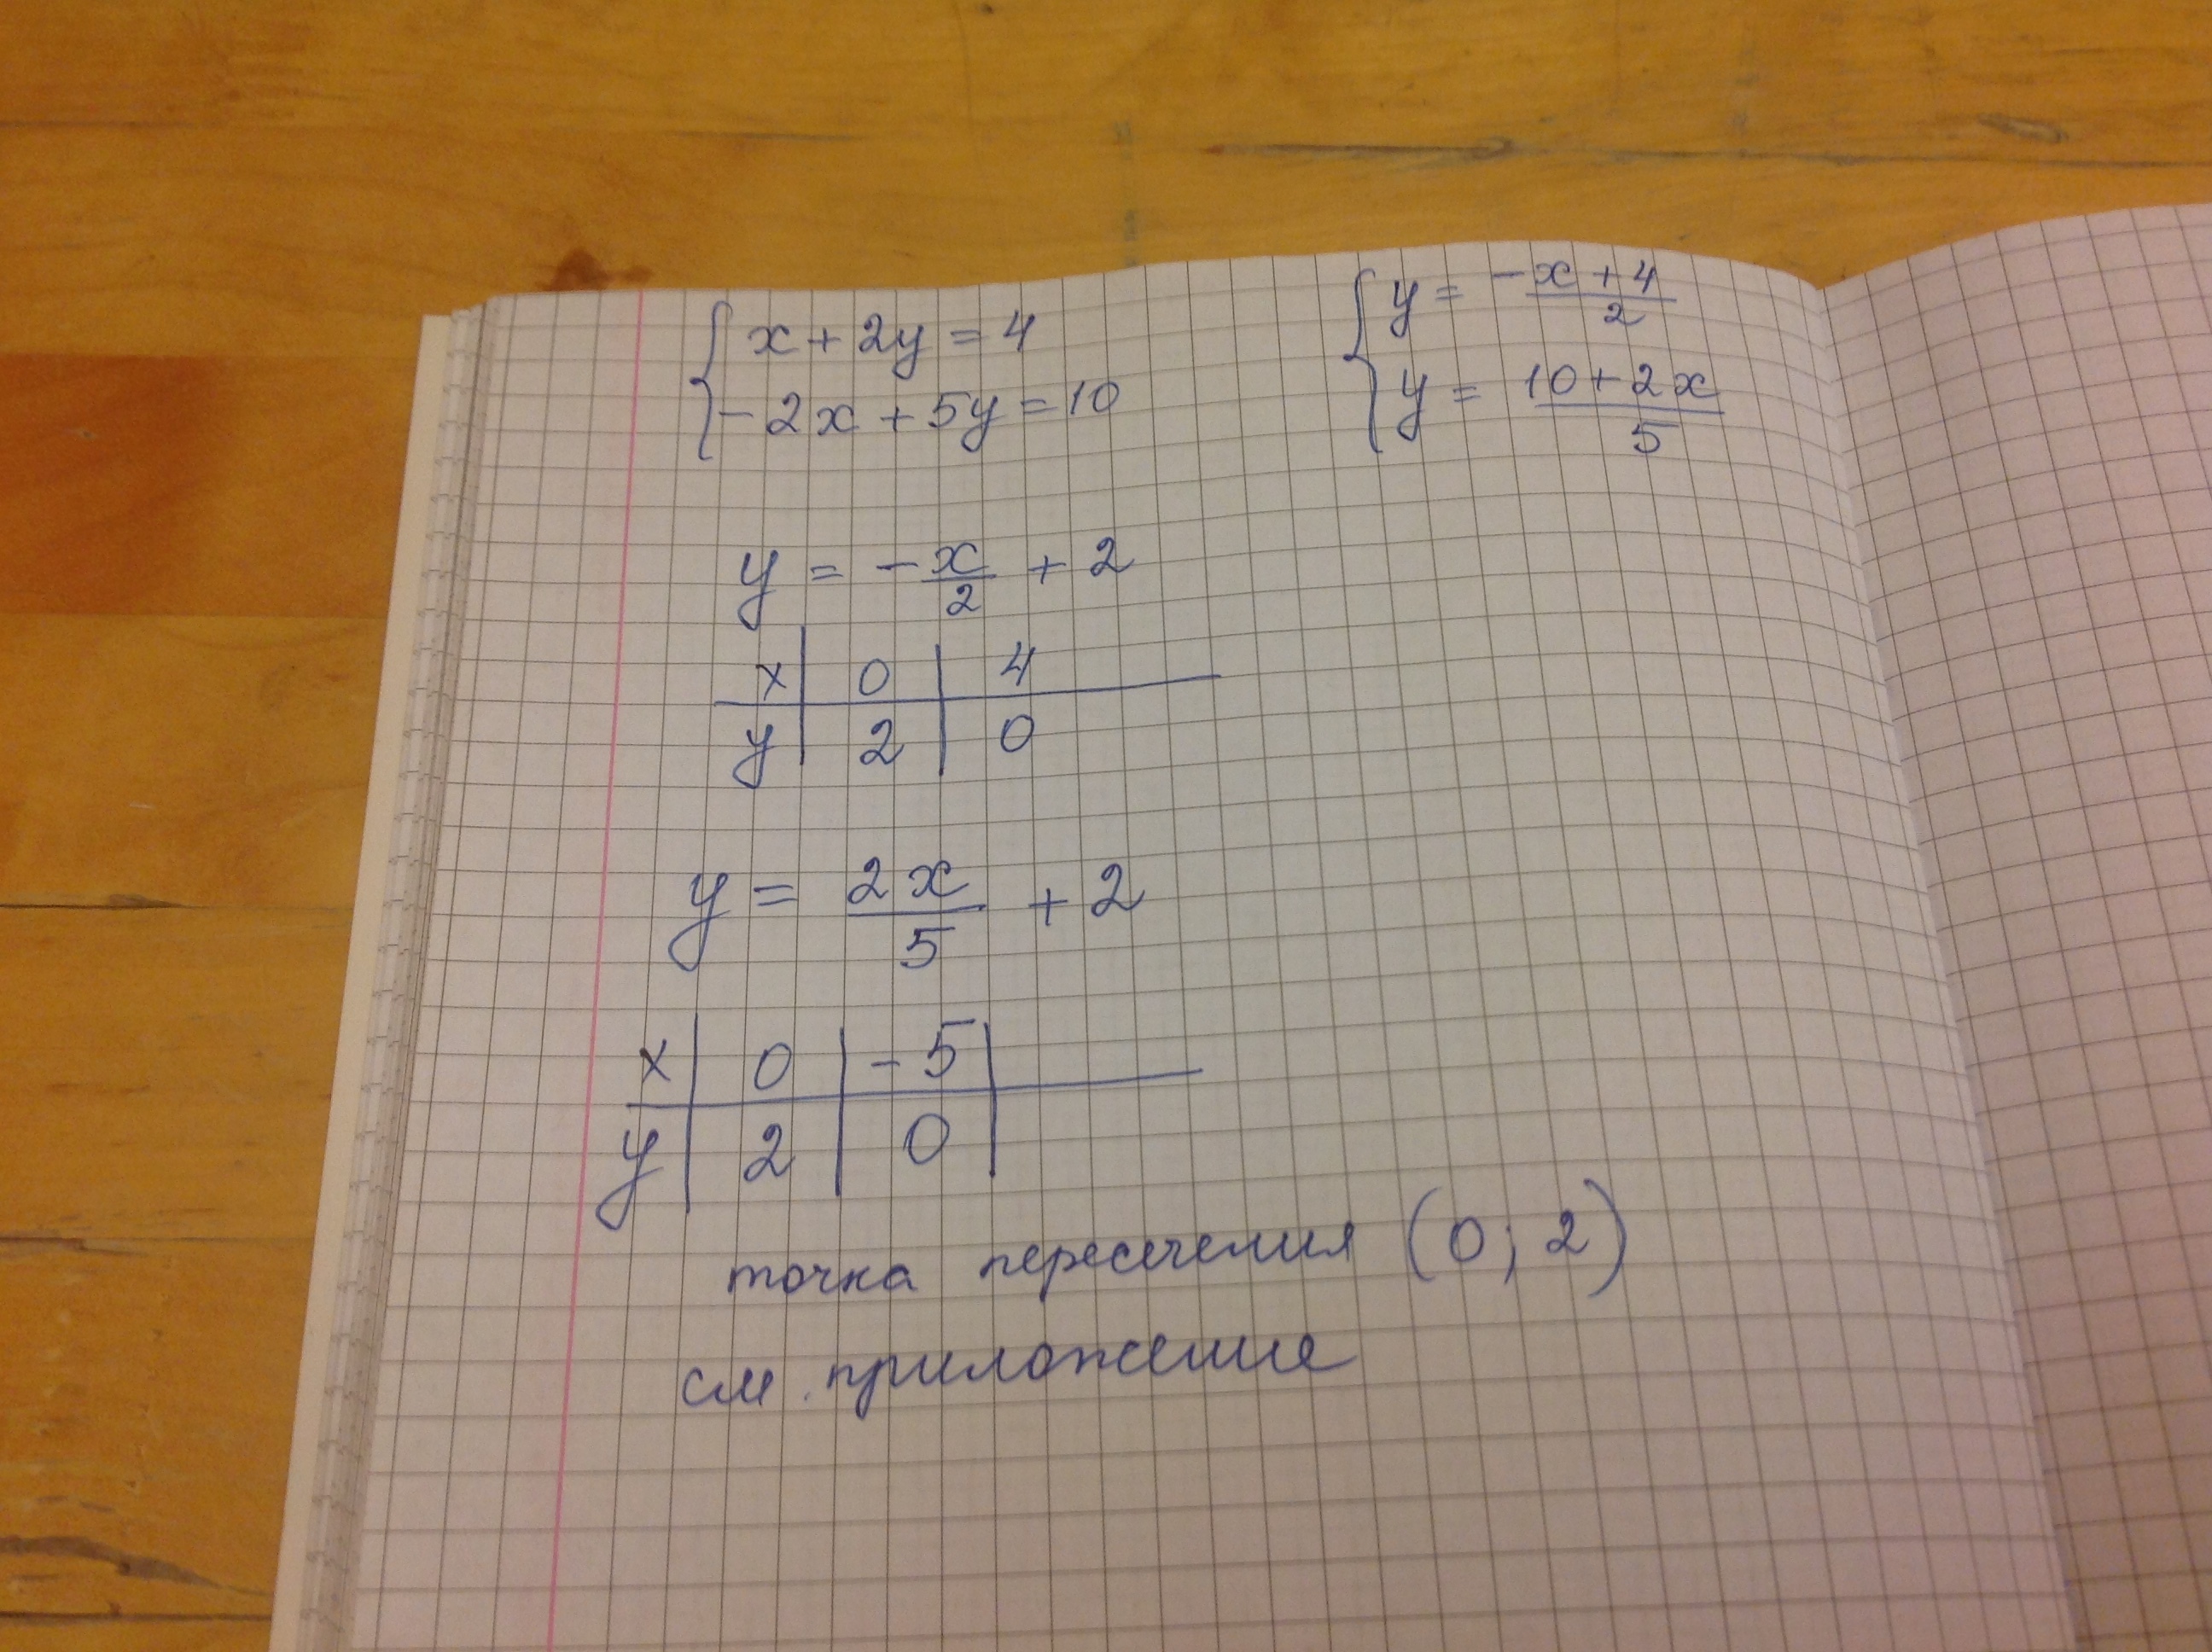 x + 2y = 4
- 2x + 5y = 10
y = -x + 4 / 2
y = 10 + 2x / 5
y = - x/2 + 2
x | 0 | 4
y | 2 | 0
y = 2x/5 + 2
x | 0 | -5 |
y | 2 | 0 |
точка пересечения (0; 2)
см. приложение